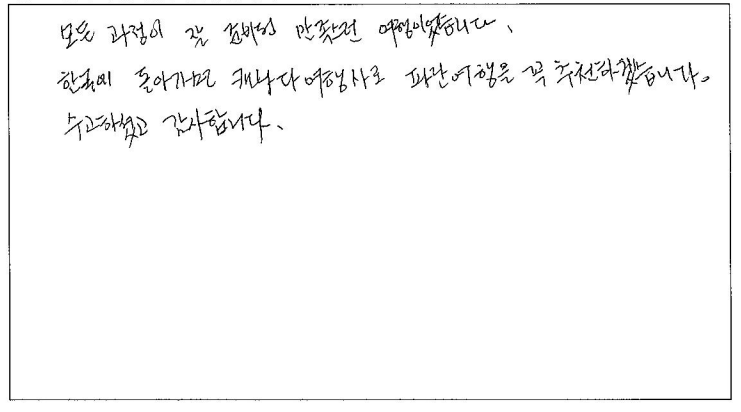 모든 과정이 잘 준비된 만족스런 여행이었습니다.
한국에 돌아가면 캐나다여행사로 파란여행을 꼭 추천하겠습니다.
수고하셨고 감사합니다.